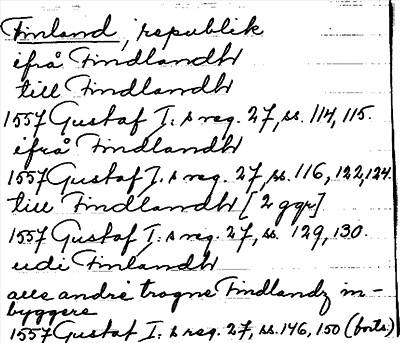 Finland, republik
ifrå Findlandh
till Findlandh
1557 Gustaf I:s reg. 27, ss. 114, 115.
ifrå Findlandh
1557 Gustaf I:s reg. 27, ss. 116, 122, 124.
till Findlandh [2 ggr]
1557 Gustaf I:s reg. 27, ss. 129, 130.
udi Finlandh
alle andre trogne Findlandz in-
byggere
1557 Gustaf I:s reg. 27, ss. 146, 150 (forts.)